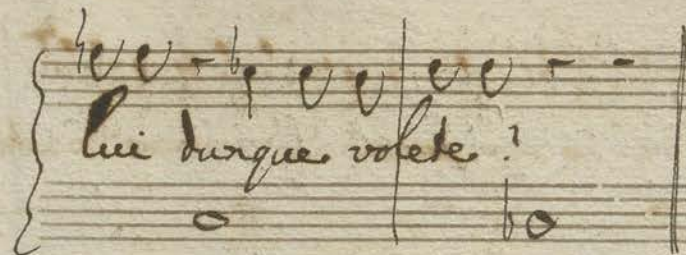 lui dunque volete?